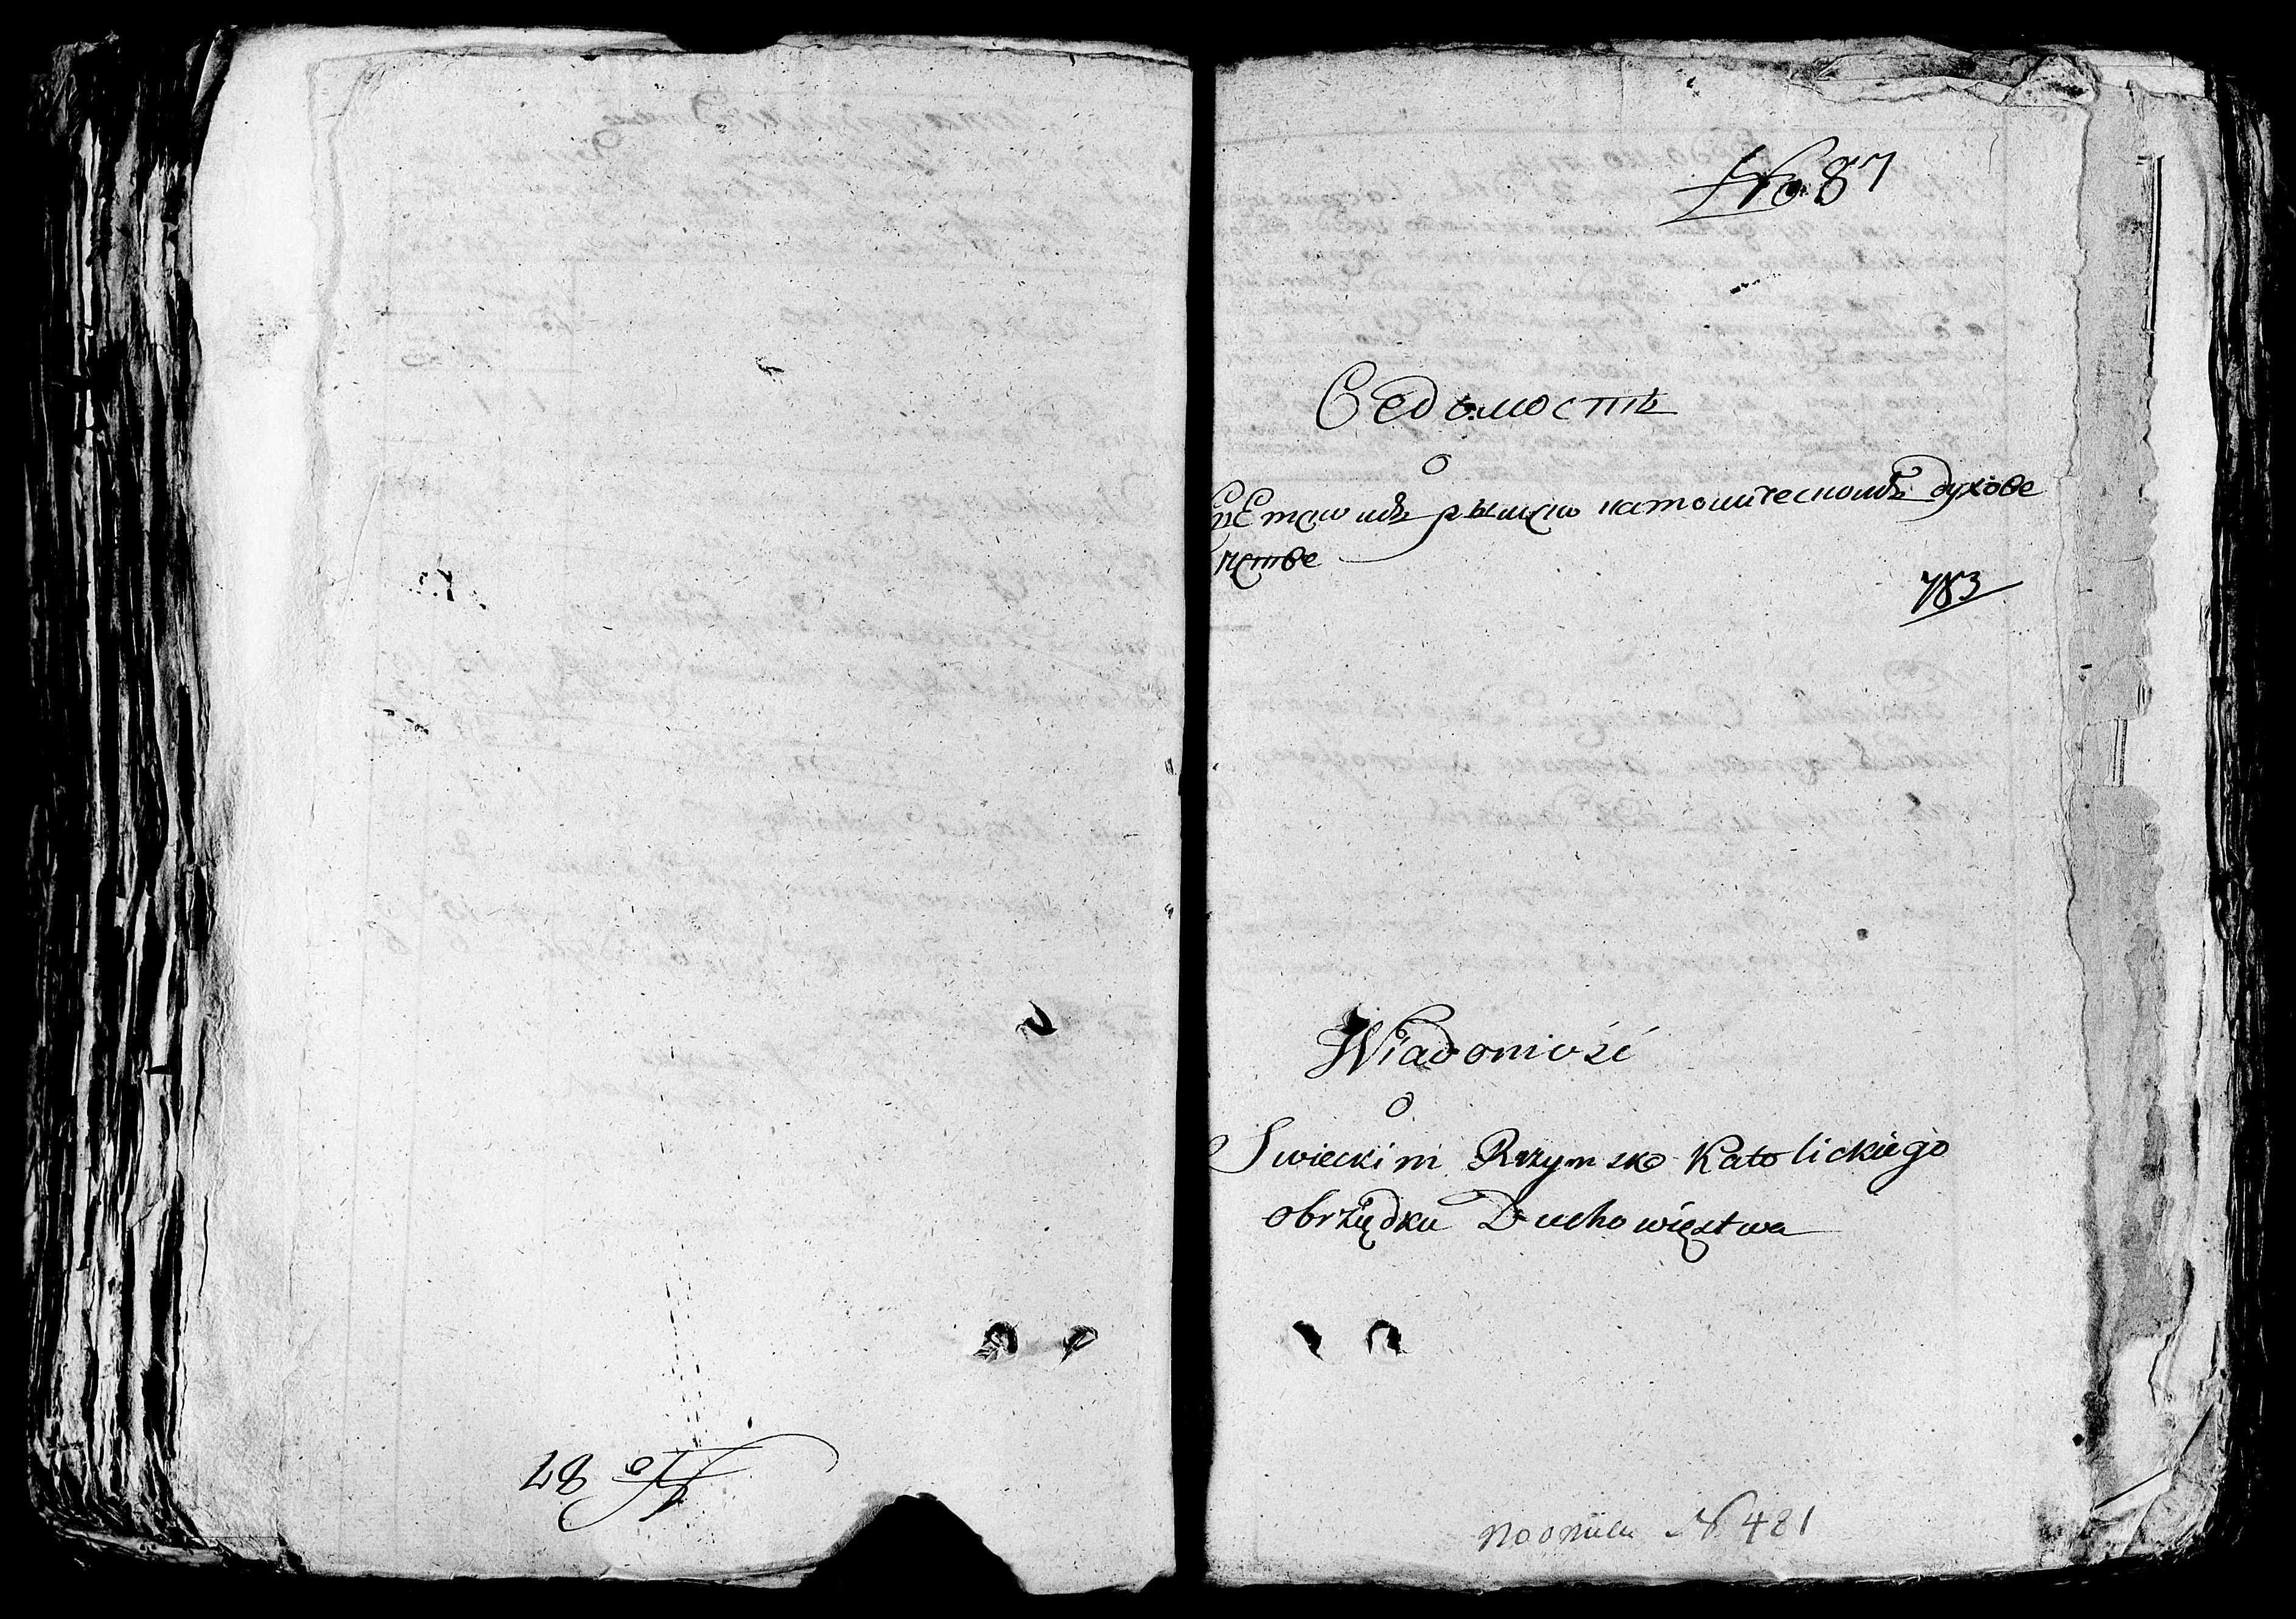 No 87
No 87
Ведомость
о
светском рымско католическом духове
нстве
783
Wiadomość
o
Swieckim Rzymsko Katolickiego
obrządku Duchowięstwa
По описи № 481